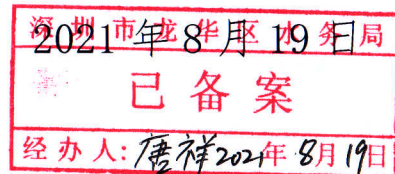 深圳市龙华区水务局
2021年8月19日
已备案
经办人:唐祥2021年8月19日